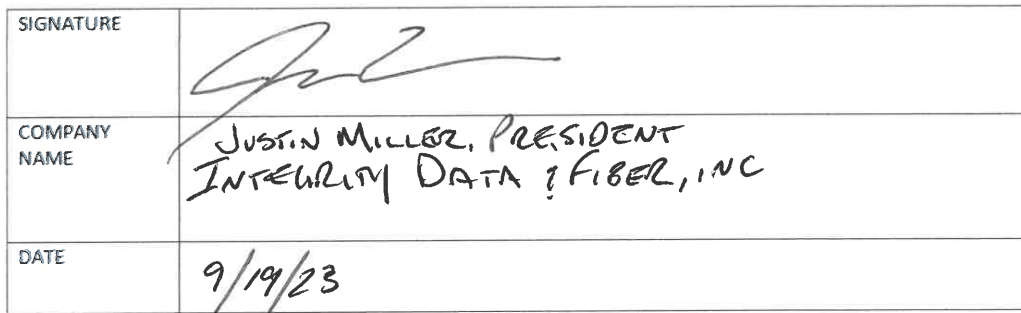 SIGNATURE
COMPANY NAME
JUSTIN MILLER, PRESIDENT
INTEGRITY DATA & FIBER, INC
DATE
9/19/23